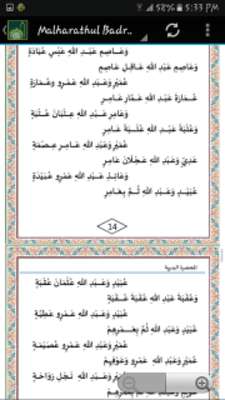 58% 5:33 PM
Malharathul Badr..
وَعَاصِمِ عَبْدِ اللهِ عَبْسِ عُبَادَةٍ
وَعَاصِمِ عَبْدِ اللهِ عَاقِلِ عَاصِمِ
عُمَيْرٍ وَعَبْدِ اللهِ عَمْرٍو وَعُمَارَةٍ
عُمَارَةَ عَبْدِ اللهِ عَمَّارِ عَامِرِ
وَعَامِرِ عَبْدِ اللهِ عِتْبَانَ عُتْبَةٍ
وَعُقْبَةَ عَبْدِ اللهِ عُتْبَةَ عَامِرِ
عُمَيْرٍ وَعَبْدِ اللهِ عَامِرِ عِصْمَةٍ
عَدِيٍّ وَعَبْدِ اللهِ عَجْلَانَ عَامِرِ
وَعَائِذِ عَبْدِ اللهِ عَمْرٍو عُبَيْدَةٍ
عُبَيْدٍ وَعَبْدِ اللهِ ثُمَّ بِعَامِرِ
14
المحضرة البدرية
عُبَيْدٍ وَعَبْدِ اللهِ عُثْمَانَ عُقْبَةٍ
وَعُقْبَةَ عَبْدِ اللهِ عُقْبَةَ عُقْبَةٍ
عُبَيْدٍ وَعَبْدِ اللهِ عَمْرٍو عَطِيَّةٍ
عُبَيْدٍ وَعَبْدِ اللهِ ثُمَّ بِعَمْرِهِمْ
عُمَيْرٍ وَعَبْدِ اللهِ عَمْرٍو عُصَيْمَةٍ
عُمَيْرٍ وَعَبْدِ اللهِ عَمْرٍو وَعَوْفِهِمْ
وَعَبْدِ اللهِ نَجْلِ رَوَاحَةٍ